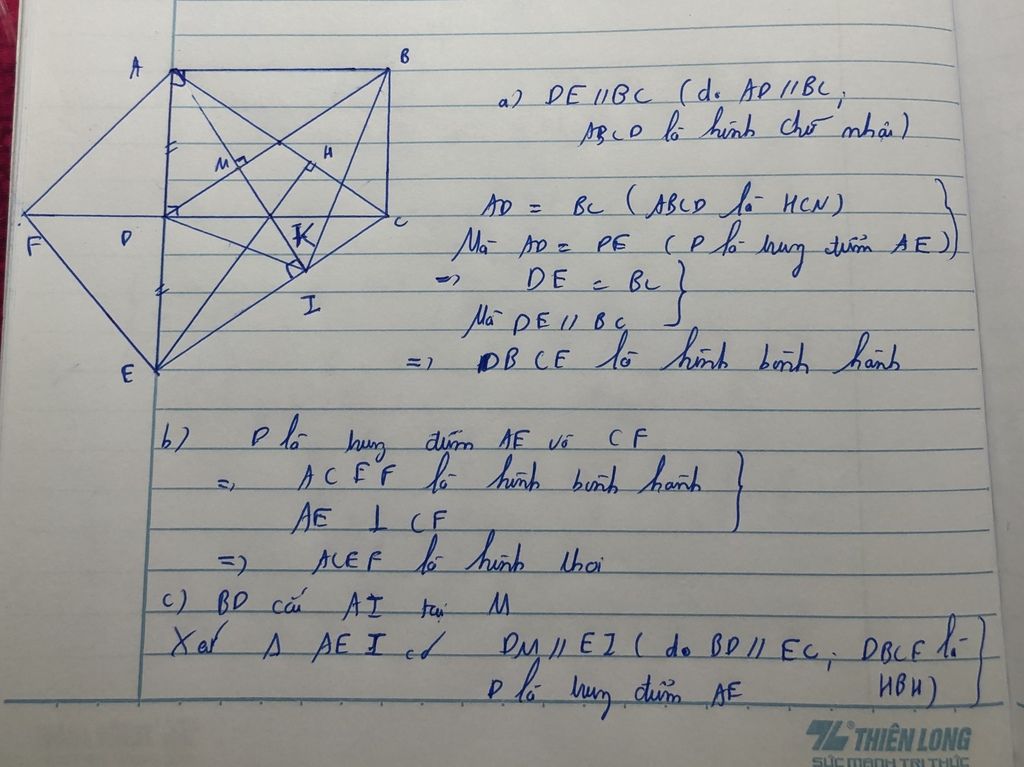 A
B
M
H
F
D
K
C
I
E
a) DE // BC (do AD // BC;
ABCD là hình chữ nhật)
AD = BC (ABCD là HCN)
Mà AD = DE (D là trung điểm AE)
=> DE = BC
Mà DE // BC
=> DBCE là hình bình hành
b) D là trung điểm AE và CF
=> ACEF là hình bình hành
AE ⊥ CF
=> ACEF là hình thoi
c) BD cắt AI tại M
Xét Δ AEI có DM // EI (do BD // EC; DBCE là
D là trung điểm AE HBH)
THIÊN LONG
SỨC MẠNH TRI THỨC